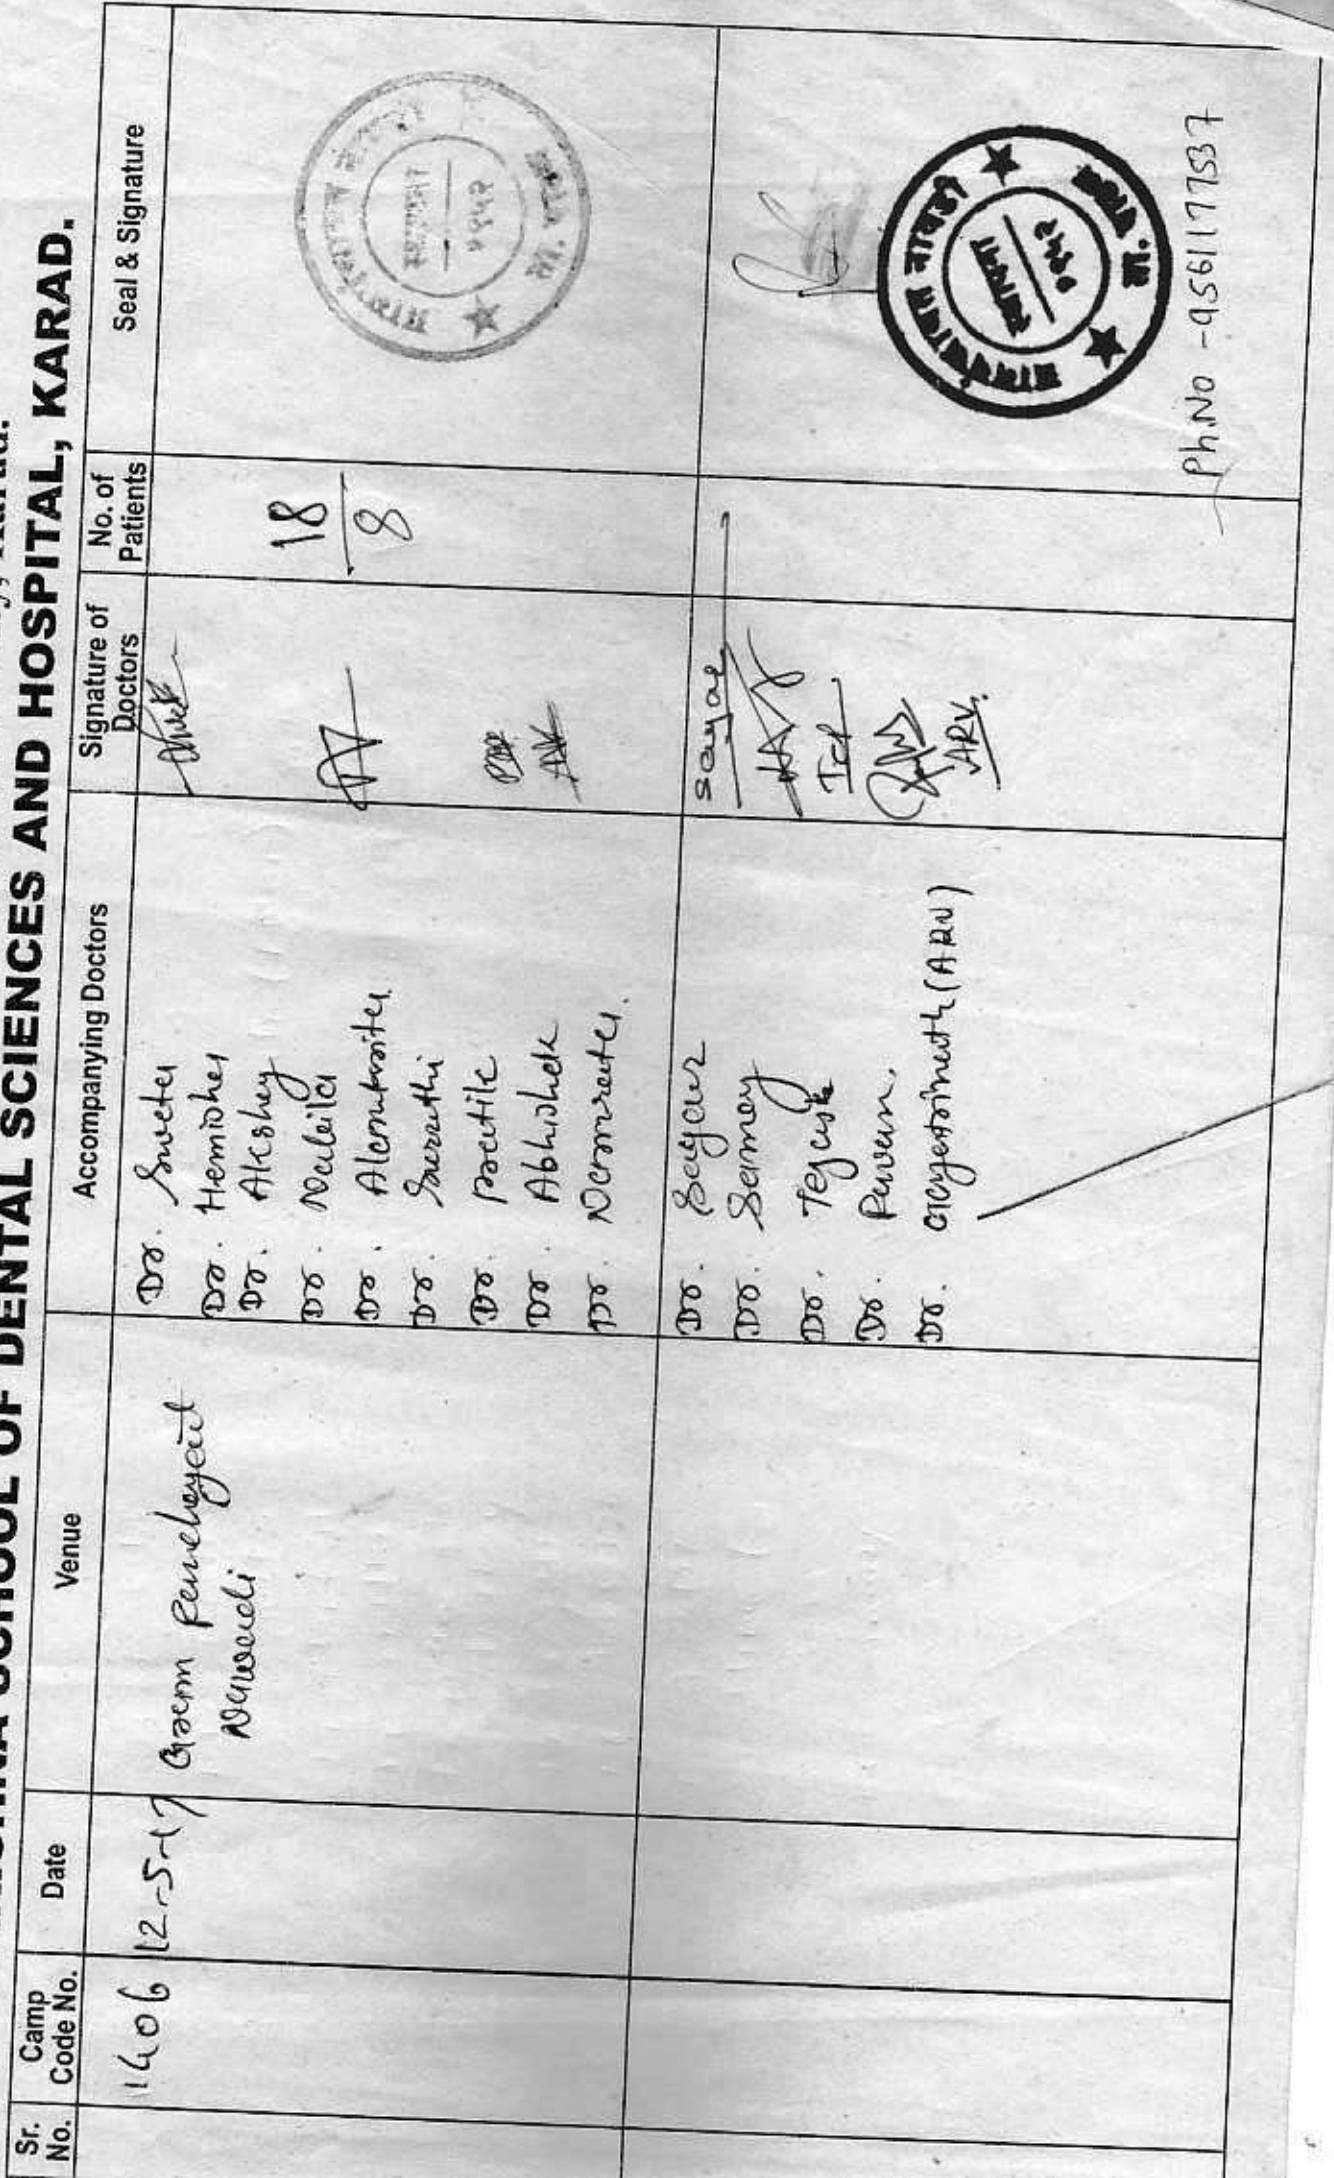 SCHOOL OF DENTAL SCIENCES AND HOSPITAL, KARAD.
Sr. No.
Camp Code No.
Date
Venue
Accompanying Doctors
Signature of Doctors
No. of Patients
Seal & Signature
1406
12-5-17
Gram Panchayat
Nawadi
Dr. Sweta
Dr. Hemisha
Dr. Akshay
Dr.
Dr. Alamprita
Dr. Saurathi
Dr. Pratik
Dr. Abhishek
Dr. Namrata.
18
8
Dr. Sagar
Dr. Samay
Dr. Tejas
Dr. Pavan.
Dr. (ARV)
Sagar
ARV.
ग्रामपंचायत नावडी
स्थापना
१९५२
Ph.No - 9561177537